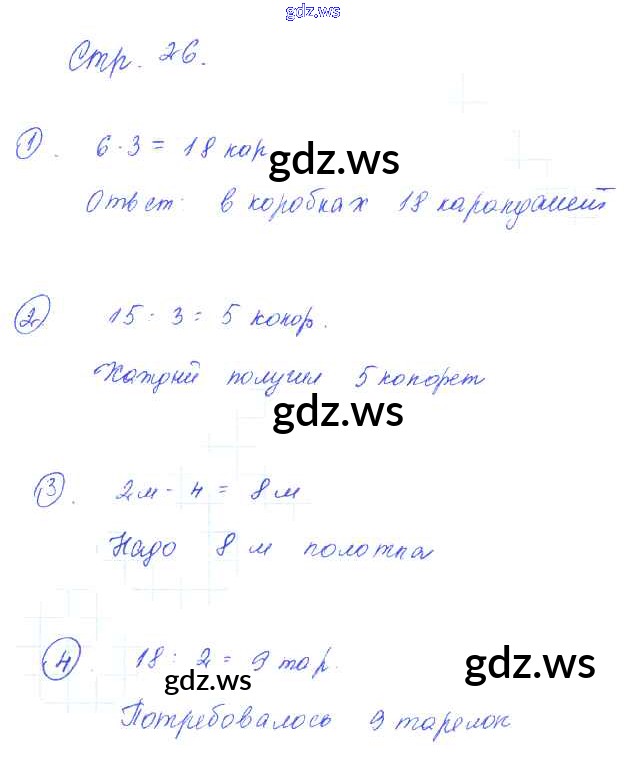 gdz.ws
Стр. 26.
1. 6 · 3 = 18 кар
gdz.ws
Ответ: в коробках 18 карандашей
2 15 : 3 = 5 конф.
Каждый получил 5 конфет
gdz.ws
3. 2м · 4 = 8 м
Надо 8 м полотна
4. 18 : 2 = 9 тар.
gdz.ws
gdz.ws
Потребовалось 9 тарелок